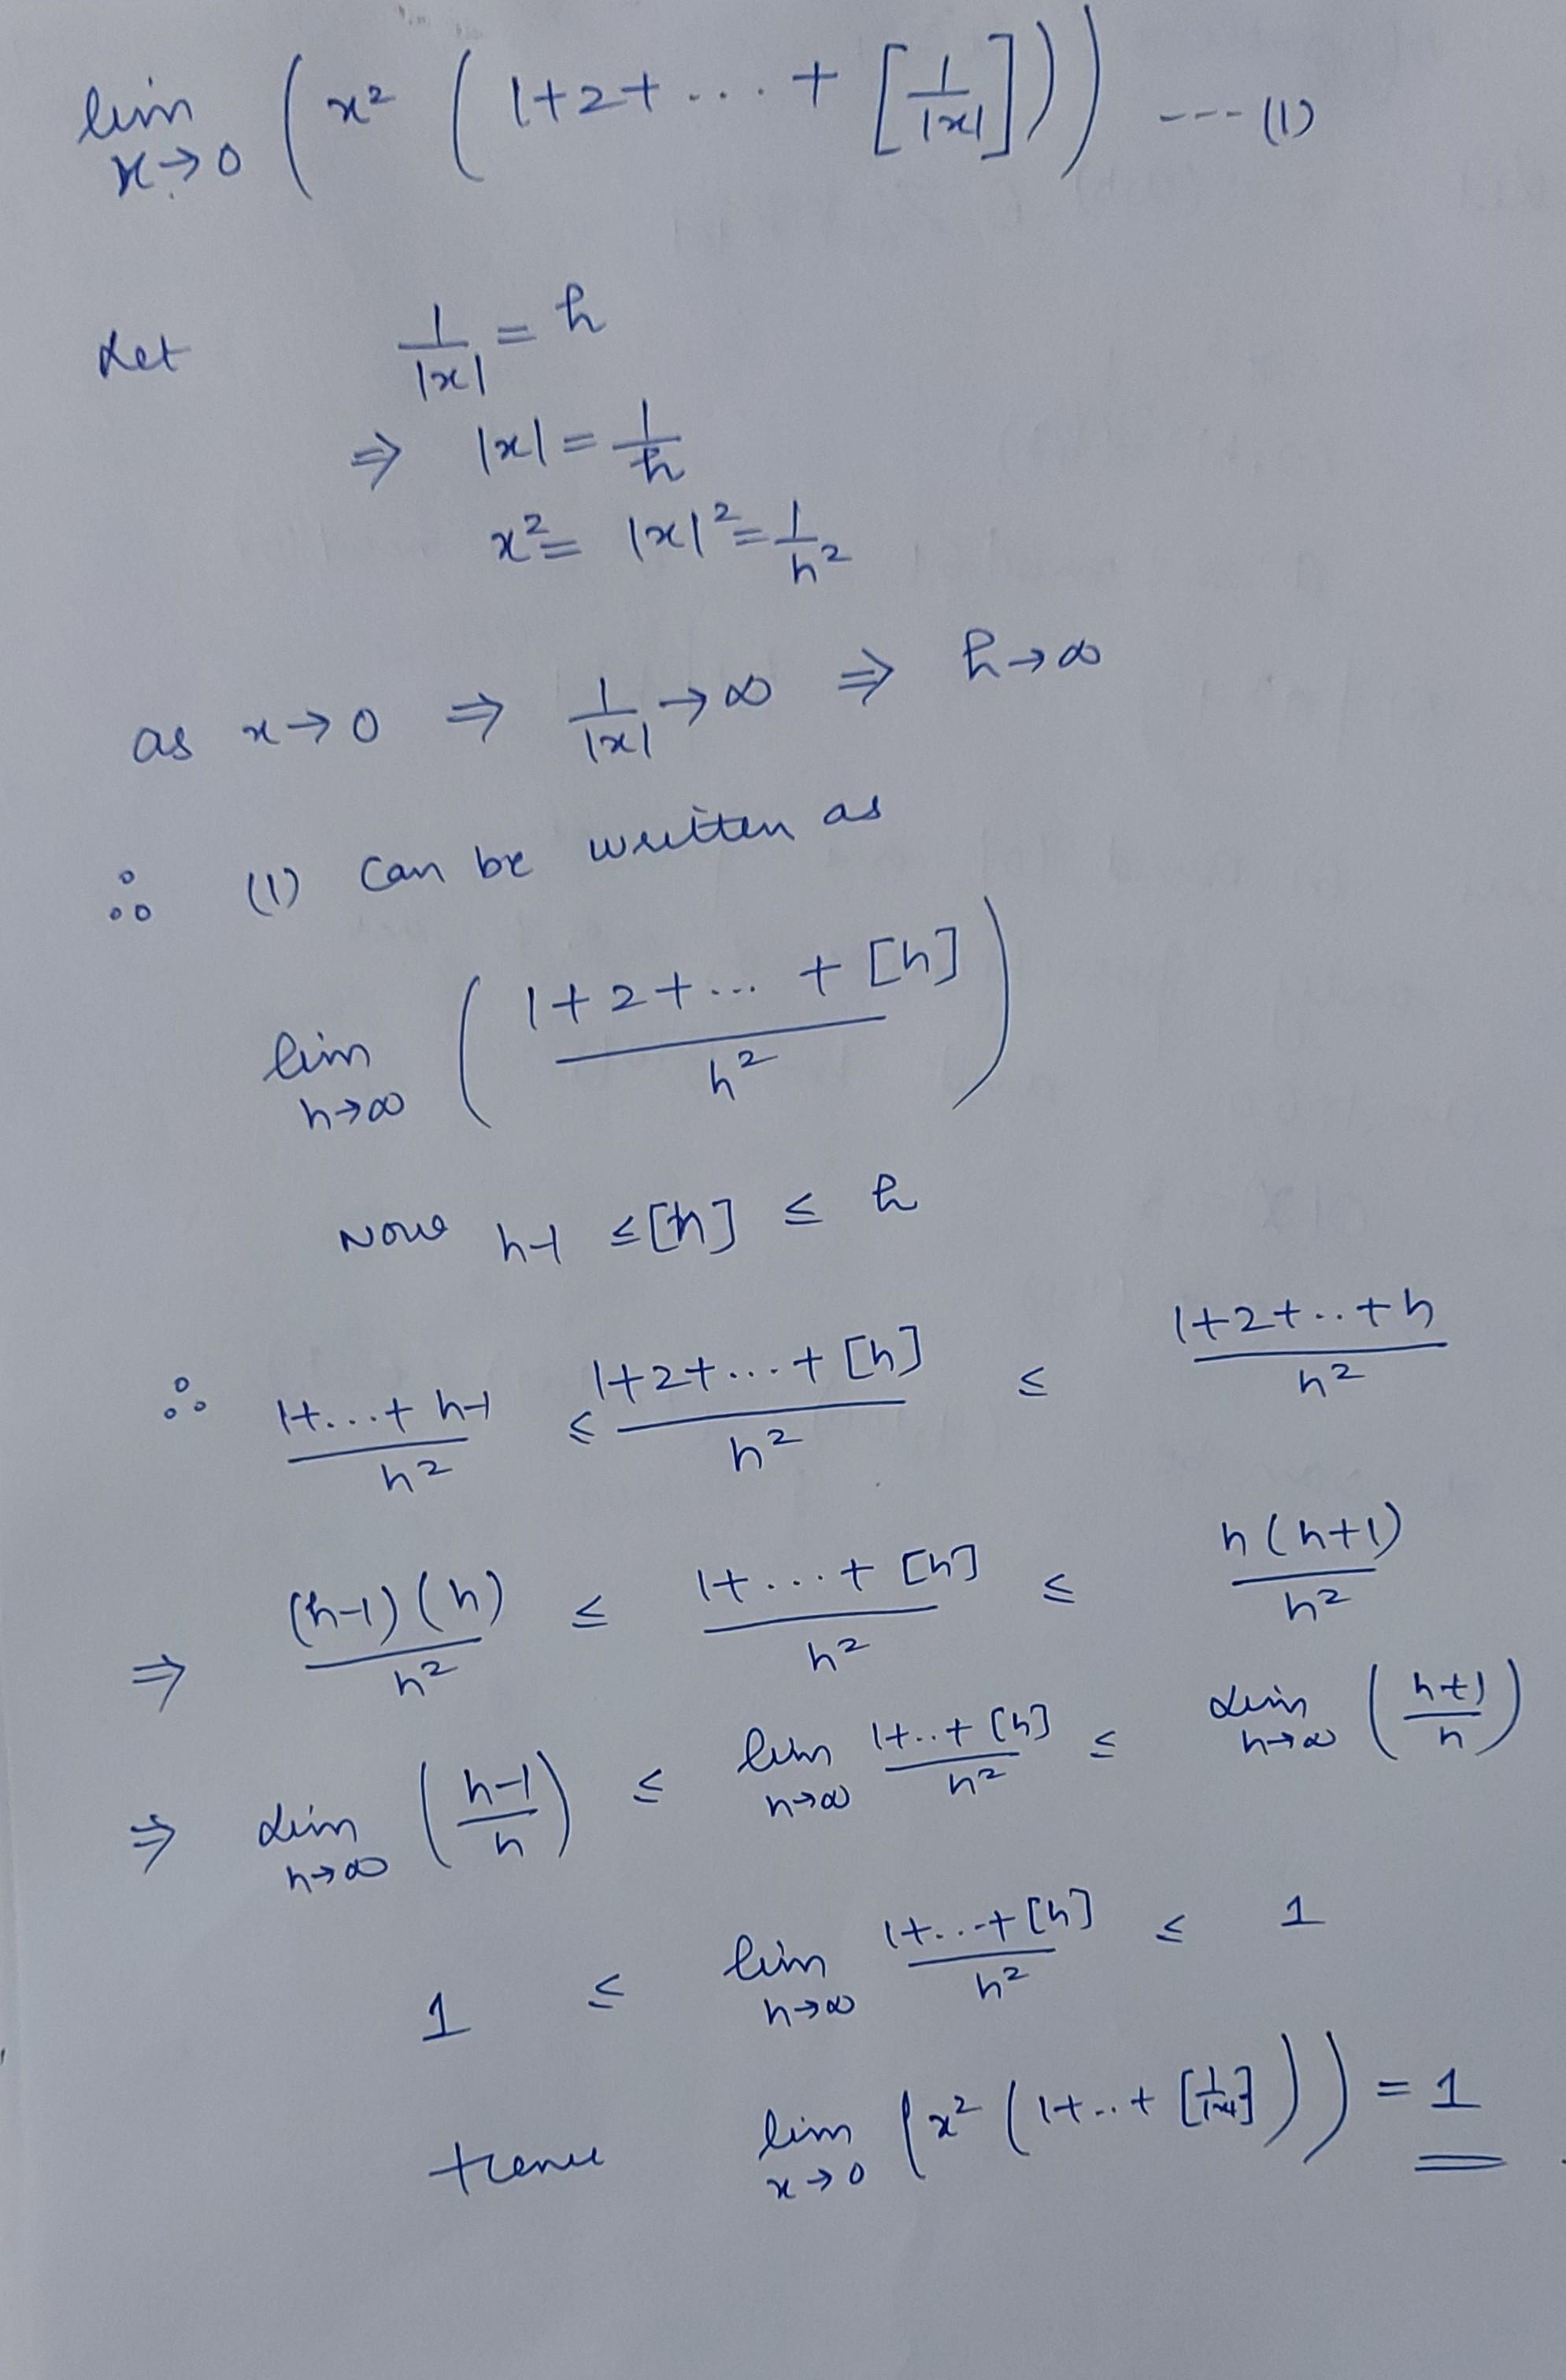 lim x→0 ( x² ( 1+2+...+ [1/|x|] ) ) --- (1)
Let 1/|x| = h
⇒ |x| = 1/h
x² = |x|² = 1/h²
as x→0 ⇒ 1/|x| → ∞ ⇒ h→∞
∴ (1) can be written as
lim h→∞ ( (1+2+...+[h]) / h² )
Now h-1 ≤ [h] ≤ h
∴ (1+...+h-1)/h² ≤ (1+2+...+[h])/h² ≤ (1+2+..+h)/h²
⇒ (h-1)(h)/h² ≤ (1+...+[h])/h² ≤ h(h+1)/h²
⇒ Lim h→∞ ((h-1)/h) ≤ lim h→∞ (1+..+[h])/h² ≤ Lim h→∞ ((h+1)/h)
1 ≤ lim h→∞ (1+...+[h])/h² ≤ 1
Hence lim x→0 ( x² ( 1+..+ [1/|x|] ) ) = 1